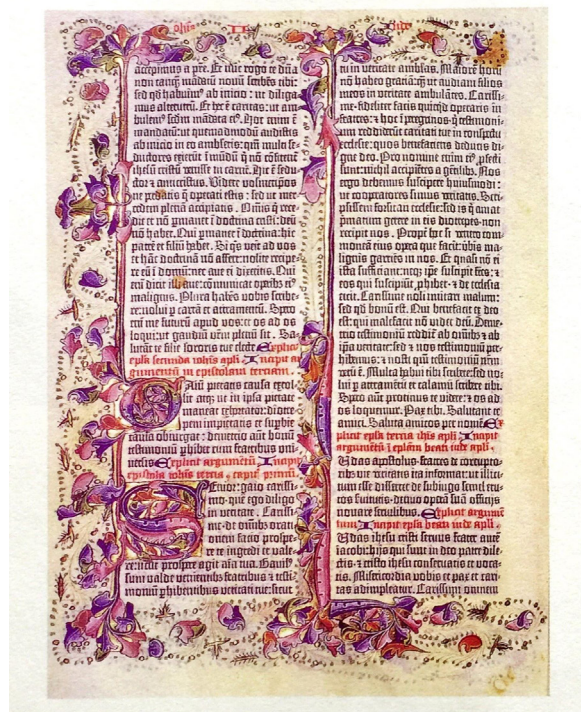 Johis II Jude
accepimus a pre. Et nunc rogo te dña
non tanq̃ mãdatũ novũ scribẽs tibi:
sed qd habuimꝰ ab inicio: ut diliga-
mus alterutrũ. Et hec ẽ caritas: ut am-
bulemꝰ scdm mãdata eiꝰ. Hoc enim ẽ
mandatũ: ut quemadmodũ audistis
ab inicio in eo ambuletis: qm̃ multi se-
ductores exierũt ĩ mũdũ q̃ nõ cõfitent̃
ihesũ cristũ venisse in carnẽ. Hic ẽ sedu-
ctor & anticristus. Videte vosmetipos
ne perdatis q̃ operati estis: sed ut mer-
cedem plenã accipiatis. Omĩs q̃ rece-
dit et nõ pmanet ĩ doctrina cristi: deũ
nõ habet. Qui pmanet ĩ doctrina: hic
patrẽ et filiũ habet. Si q̃s veit ad vos
et hãc doctrinã nõ affert: nolite recipe-
re eũ ĩ domũ: nec ave ei dixeritis. Qui
eni dicit illi ave: cõmunicat operibꝫ eiꝰ
malignis. Plura habẽs vobis scribe-
re: nolui p cartã et atramentũ. Spero
eni me futurũ apud vos: et os ad os
loqui: ut gaudiũ vrm̃ plenũ sit. Sa-
lutãt te filii sororis tue electe Explicit
epl̃a secunda iohis apl̃i Incipit ar-
gumentũ in epistolam terciam.
Gaiũ pietatis causa extol-
lit atq; ut in ipsa pietate
maneat exhortatur: diotre-
pem impietatis et superbie
causa obiurgat: demetrio aut bonũ
testimoniũ phibet cum fratribus oni-
bus Explicit argumẽtũ Incipit
epistola iohis tercia. capitl̃ primũ
Senior: gaio carissi-
mo: que ego diligo
in veritate. Carissi-
me: de omibꝫ orati-
onem facio prospe-
re te ingredi et vale-
re: sicut prospere agit aĩa tua. Gavisꝰ
sum valde venientibꝫ fratribus & testi-
moniũ phibentibus veritati tue: sicut
tu in veritate ambulas. Maiorẽ horũ
nõ habeo gratiã: q̃ ut audiam filios
meos in veritate ambulãtes. Carissi-
me: fideliter facis quicqd operaris in
fratres: & hoc ĩ peregrinos: q̃ testimoni-
um reddiderũt caritati tue in conspectu
ecclesie: quos benefaciens deduxis di-
gne deo. Pro nomine enim eiꝰ pfecti
sunt: nichil accipiẽtes a gẽtilibꝫ. Nos
ergo debemus suscipere huiusmodi:
ut cooperatores simus veritatis. Scri-
psissem forsitan ecclesie: sed is q̃ amat
p̃matum gerere in eis diotrepes: non
recipit nos. Propt̃ hoc si venero com-
monẽam eius opera que facit: vbis ma-
lignis garriẽs in nos. Et quasi nõ ei
ista sufficiant: neq; ipe suscipit fr̃es: &
eos qui suscipiũt phibet: & de ecclesia
eicit. Carissime noli imitari malum:
sed qd bonũ est. Qui benefacit ex deo
est: qui malefacit nõ vidit deũ. Deme-
trio testimoniũ reddit̃ ab omibꝫ & ab
ip̃a veritate: sed & nos testimoniũ per-
hibemus: & nosti qm̃ testimoniũ nrm̃
verũ ẽ. Multa habui tibi scribere: sed no-
lui p atramentũ et calamũ scribere tibi.
Spero aũt protinus te videre: & os ad
os loquemur. Pax tibi. Salutant te
amici. Saluta amicos per nomẽ Ex-
plicit epl̃a tercia ihis apl̃i Incipit
argumẽtũ ĩ epl̃am beati iude apl̃i.
Iudas apostolus fratres de corrupto-
ribꝫ vie veritatis ĩnformat: ut illici-
tum esse dissecet de subiugo semel exer-
cos fuitatis: detuo operã suũ officiis
novare secularibus. Explicit argumẽ-
tum Incipit epl̃a beati iude apl̃i.
Iudas ihesu cristi servus frater autẽ
iacobi: hijs qui sunt in deo patre dile-
ctis: & cristo ihesu conservatis et voca-
tis. Misericordia vobis et pax et cari-
tas adimpleatur. Carissimi omnem